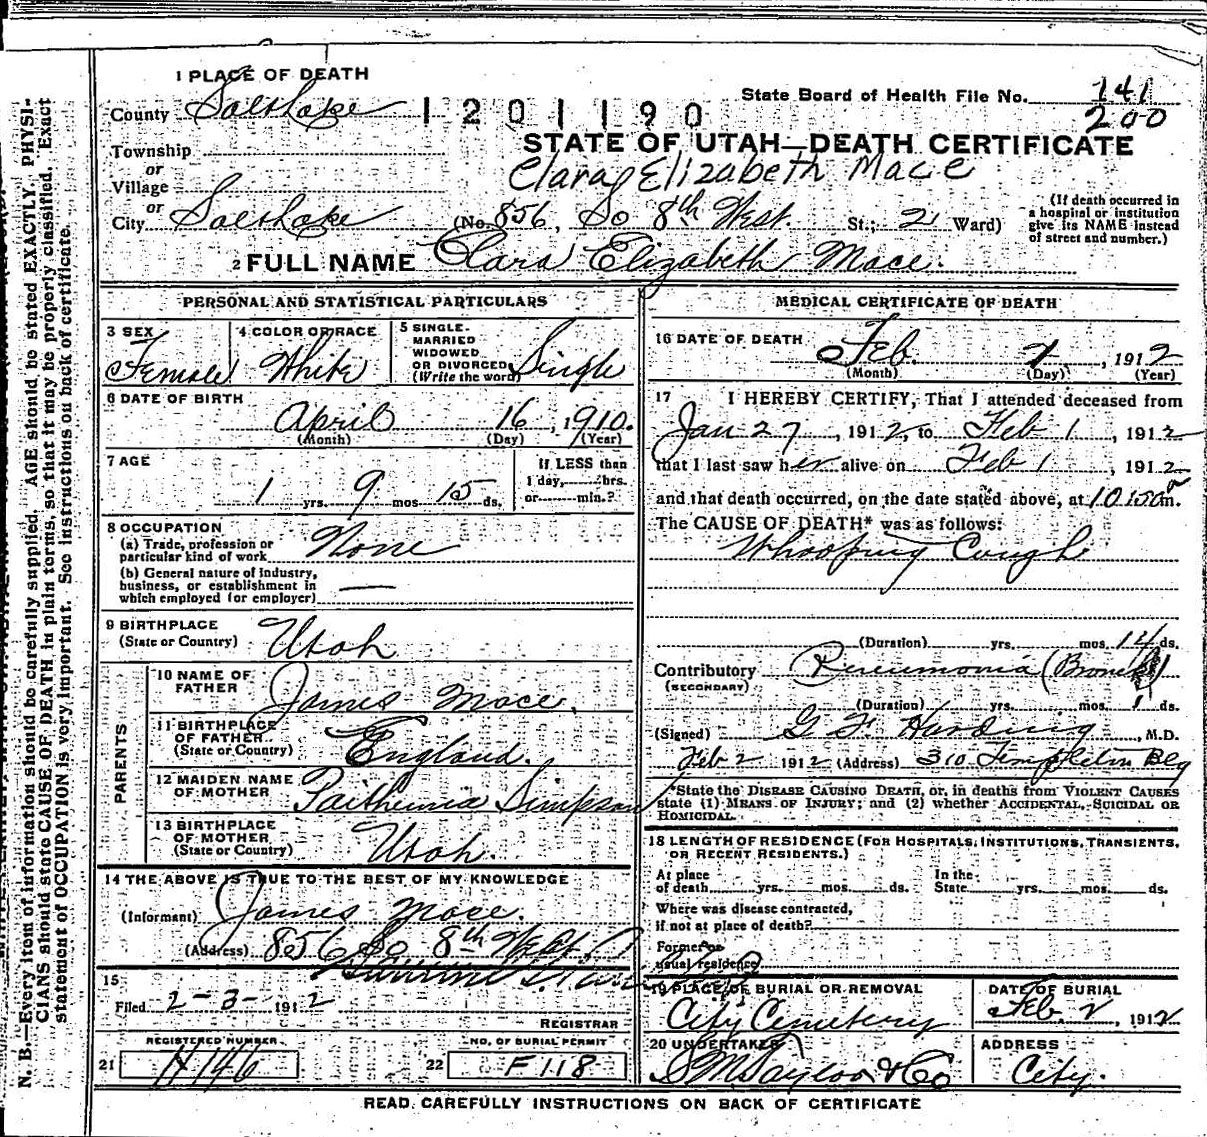 1 PLACE OF DEATH
County Salt Lake
1201190
State Board of Health File No. 141
200
Township
STATE OF UTAH—DEATH CERTIFICATE
or
Village
Clara Elizabeth Mace
or
City Salt Lake (No. 856, So 8th West. St.; 2 Ward)
(If death occurred in a hospital or institution give its NAME instead of street and number.)
2 FULL NAME Clara Elizabeth Mace.
PERSONAL AND STATISTICAL PARTICULARS
3 SEX Female
4 COLOR OR RACE White
5 SINGLE, MARRIED WIDOWED OR DIVORCED (Write the word) Single
6 DATE OF BIRTH
April 16, 1910.
(Month) (Day) (Year)
7 AGE
1 yrs. 9 mos 15 ds.
If LESS than
1 day, hrs.
or min.?
8 OCCUPATION
(a) Trade, profession or
particular kind of work None
(b) General nature of industry,
business, or establishment in
which employed (or employer) —
9 BIRTHPLACE
(State or Country) Utah
PARENTS
10 NAME OF
FATHER James Mace.
11 BIRTHPLACE
OF FATHER
(State or Country) England.
12 MAIDEN NAME
OF MOTHER Simpson
13 BIRTHPLACE
OF MOTHER
(State or Country) Utah.
14 THE ABOVE IS TRUE TO THE BEST OF MY KNOWLEDGE
(Informant) James Mace.
(Address) 856 So 8th West
15
Filed 2-3- 1912
REGISTRAR
REGISTERED NUMBER
21 H146
NO. OF BURIAL PERMIT
22 F118
MEDICAL CERTIFICATE OF DEATH
16 DATE OF DEATH
Feb. 2, 1912
(Month) (Day) (Year)
17 I HEREBY CERTIFY, That I attended deceased from
Jan 27, 1912, to Feb 1, 1912
that I last saw her alive on Feb 1, 1912
and that death occurred, on the date stated above, at 10 15 a m.
The CAUSE OF DEATH* was as follows:
Whooping Cough
(Duration) yrs. mos. 14 ds.
Contributory Pneumonia
(SECONDARY)
(Duration) yrs. mos. 1 ds.
(Signed) G F Harding, M.D.
Feb 2 1912 (Address) 310 Templeton Blg
*State the DISEASE CAUSING DEATH, or, in deaths from VIOLENT CAUSES
state (1) MEANS OF INJURY; and (2) whether ACCIDENTAL, SUICIDAL OR
HOMICIDAL.
18 LENGTH OF RESIDENCE (FOR HOSPITALS, INSTITUTIONS, TRANSIENTS,
OR RECENT RESIDENTS.)
At place
of death yrs. mos. ds.
In the
State yrs. mos. ds.
Where was disease contracted,
if not at place of death?
Former or
usual residence
19 PLACE OF BURIAL OR REMOVAL
City Cemetery
DATE OF BURIAL
Feb. 2, 1912
20 UNDERTAKER
S M Taylor & Co
ADDRESS
City.
READ CAREFULLY INSTRUCTIONS ON BACK OF CERTIFICATE
N. B.—Every item of information should be carefully supplied. AGE should be stated EXACTLY. PHYSI-
CIANS should state CAUSE OF DEATH in plain terms, so that it may be properly classified. Exact
statement of OCCUPATION is very important. See instructions on back of certificate.